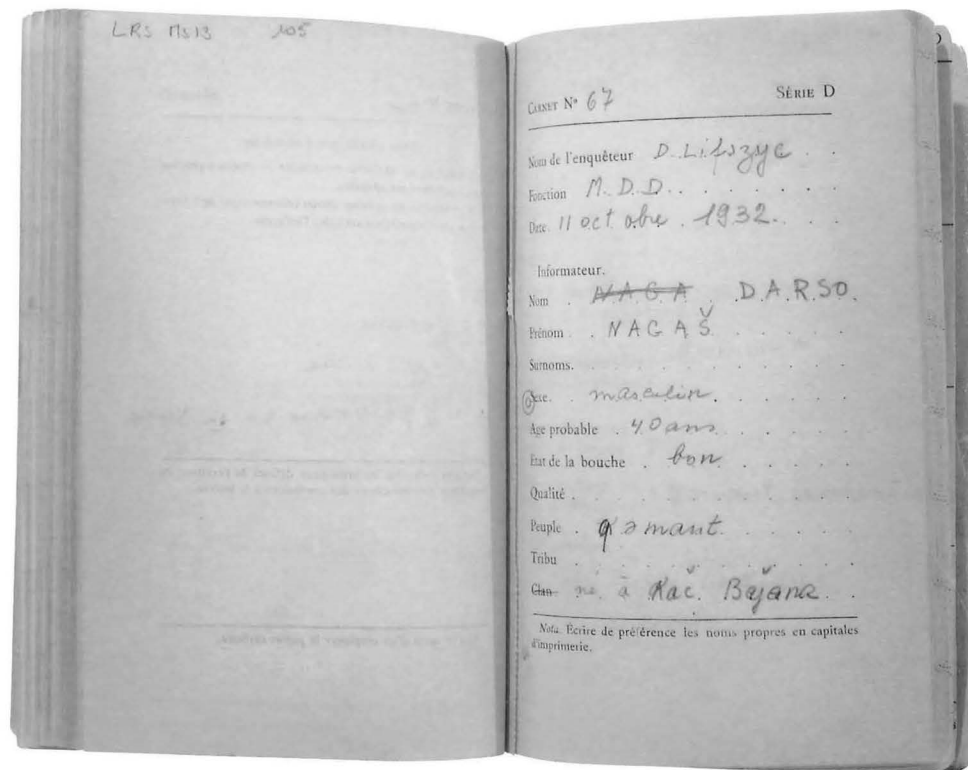 LRS Ms13 105
CARNET N° 67 SÉRIE D
Nom de l'enquêteur D. Lifszyc
Fonction M.D.D.
Date 11 octobre 1932.
Informateur.
Nom NAGA DARSO.
Prénom NAGAŠ
Surnoms.
Sexe. masculin.
Age probable 40 ans
État de la bouche bon
Qualité
Peuple qəmant.
Tribu
Clan né à Kač. Bǎjana
Nota. Écrire de préférence les noms propres en capitales
d'imprimerie.